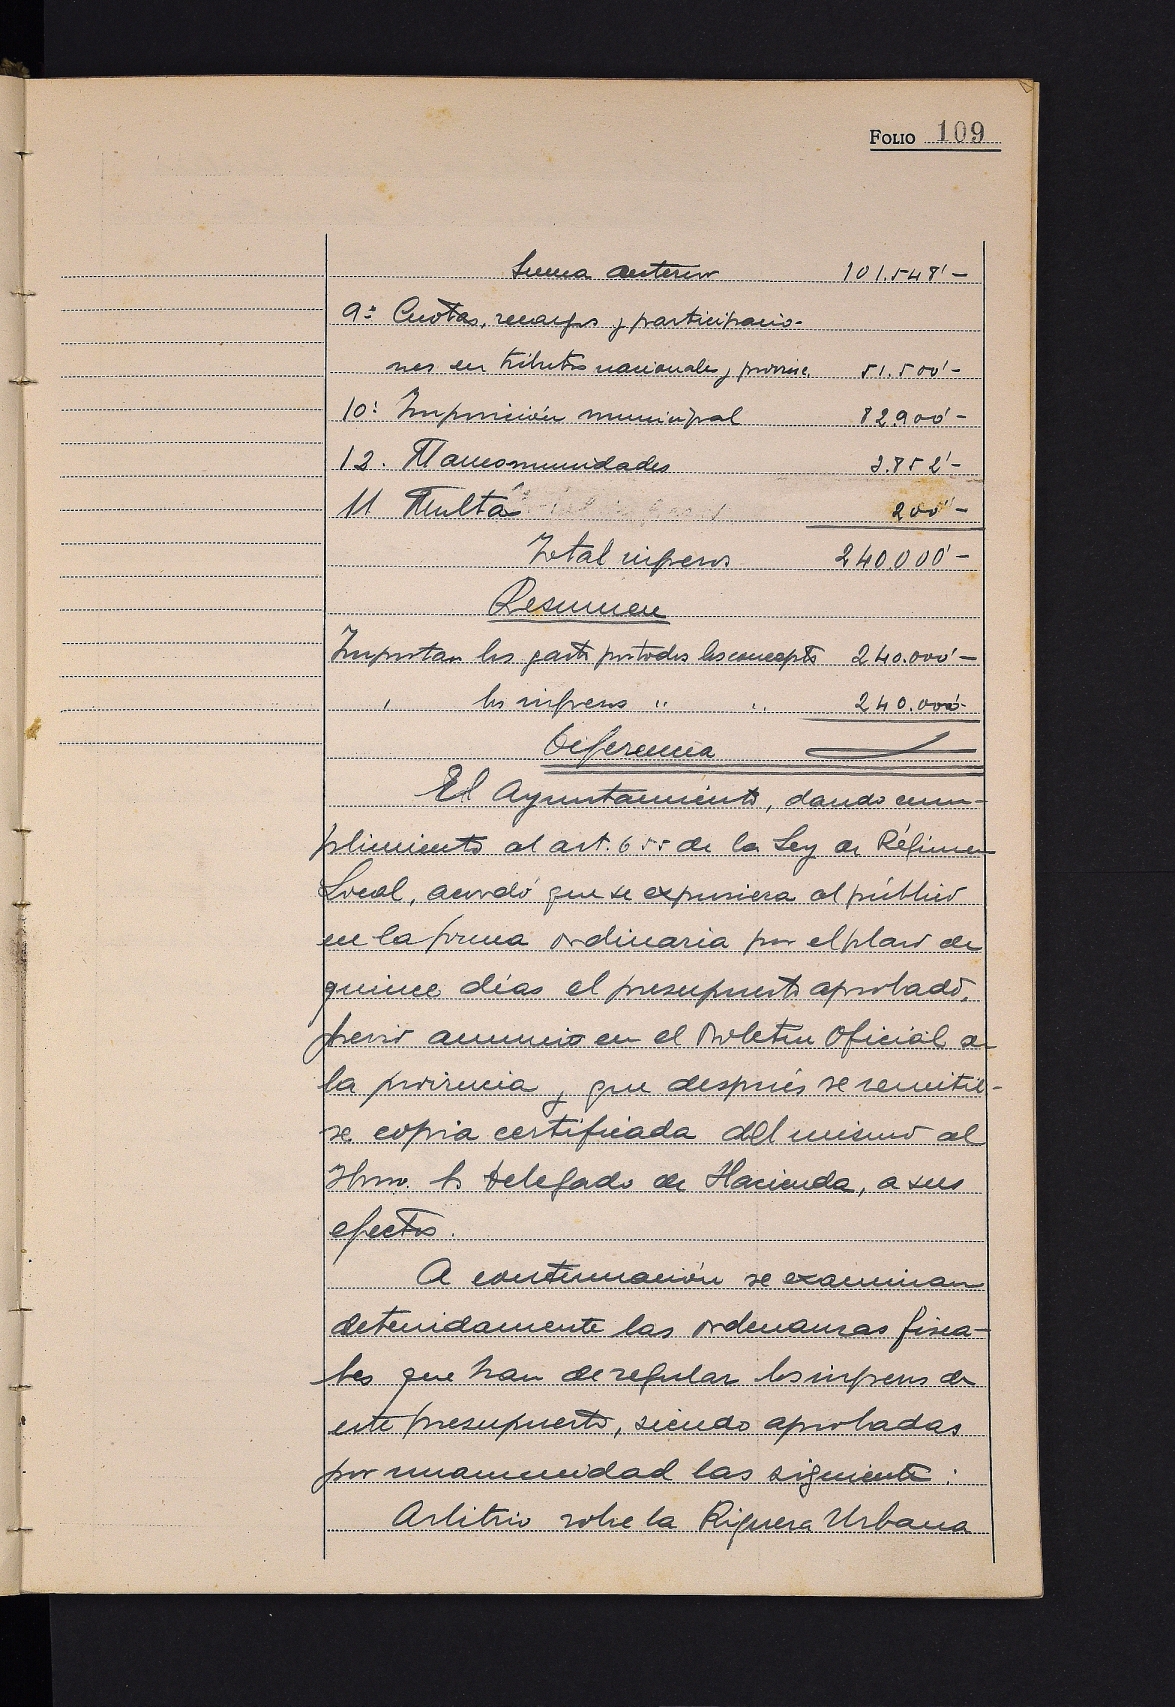 FOLIO 109
Suma anterior 101.548'-
9º Cuotas, recargos y participacio-
nes en tributos nacionales y provinc. 51.500'-
10º Imposición municipal 82.900'-
12. Mancomunidades 3.852'-
11 Multas 200'-
Total ingresos 240.000'-
Resumen
Importan los gastos por todos los conceptos 240.000'-
" los ingresos " " 240.000-
Diferencia
El Ayuntamiento, dando cum-
plimiento al art. 655 de la Ley de Régimen
Local, acordó que se expusiera al público
en la forma ordinaria por el plazo de
quince días el presupuesto aprobado,
previo anuncio en el Boletín Oficial de
la provincia y que después se remitie-
se copia certificada del mismo al
Iltmo. Sr Delegado de Hacienda, a sus
efectos.
A continuación se examinan
detenidamente las ordenanzas fisca-
les que han de regular los ingresos de
este presupuesto, siendo aprobadas
por unanimidad las siguientes:
Arbitrio sobre la Riqueza Urbana